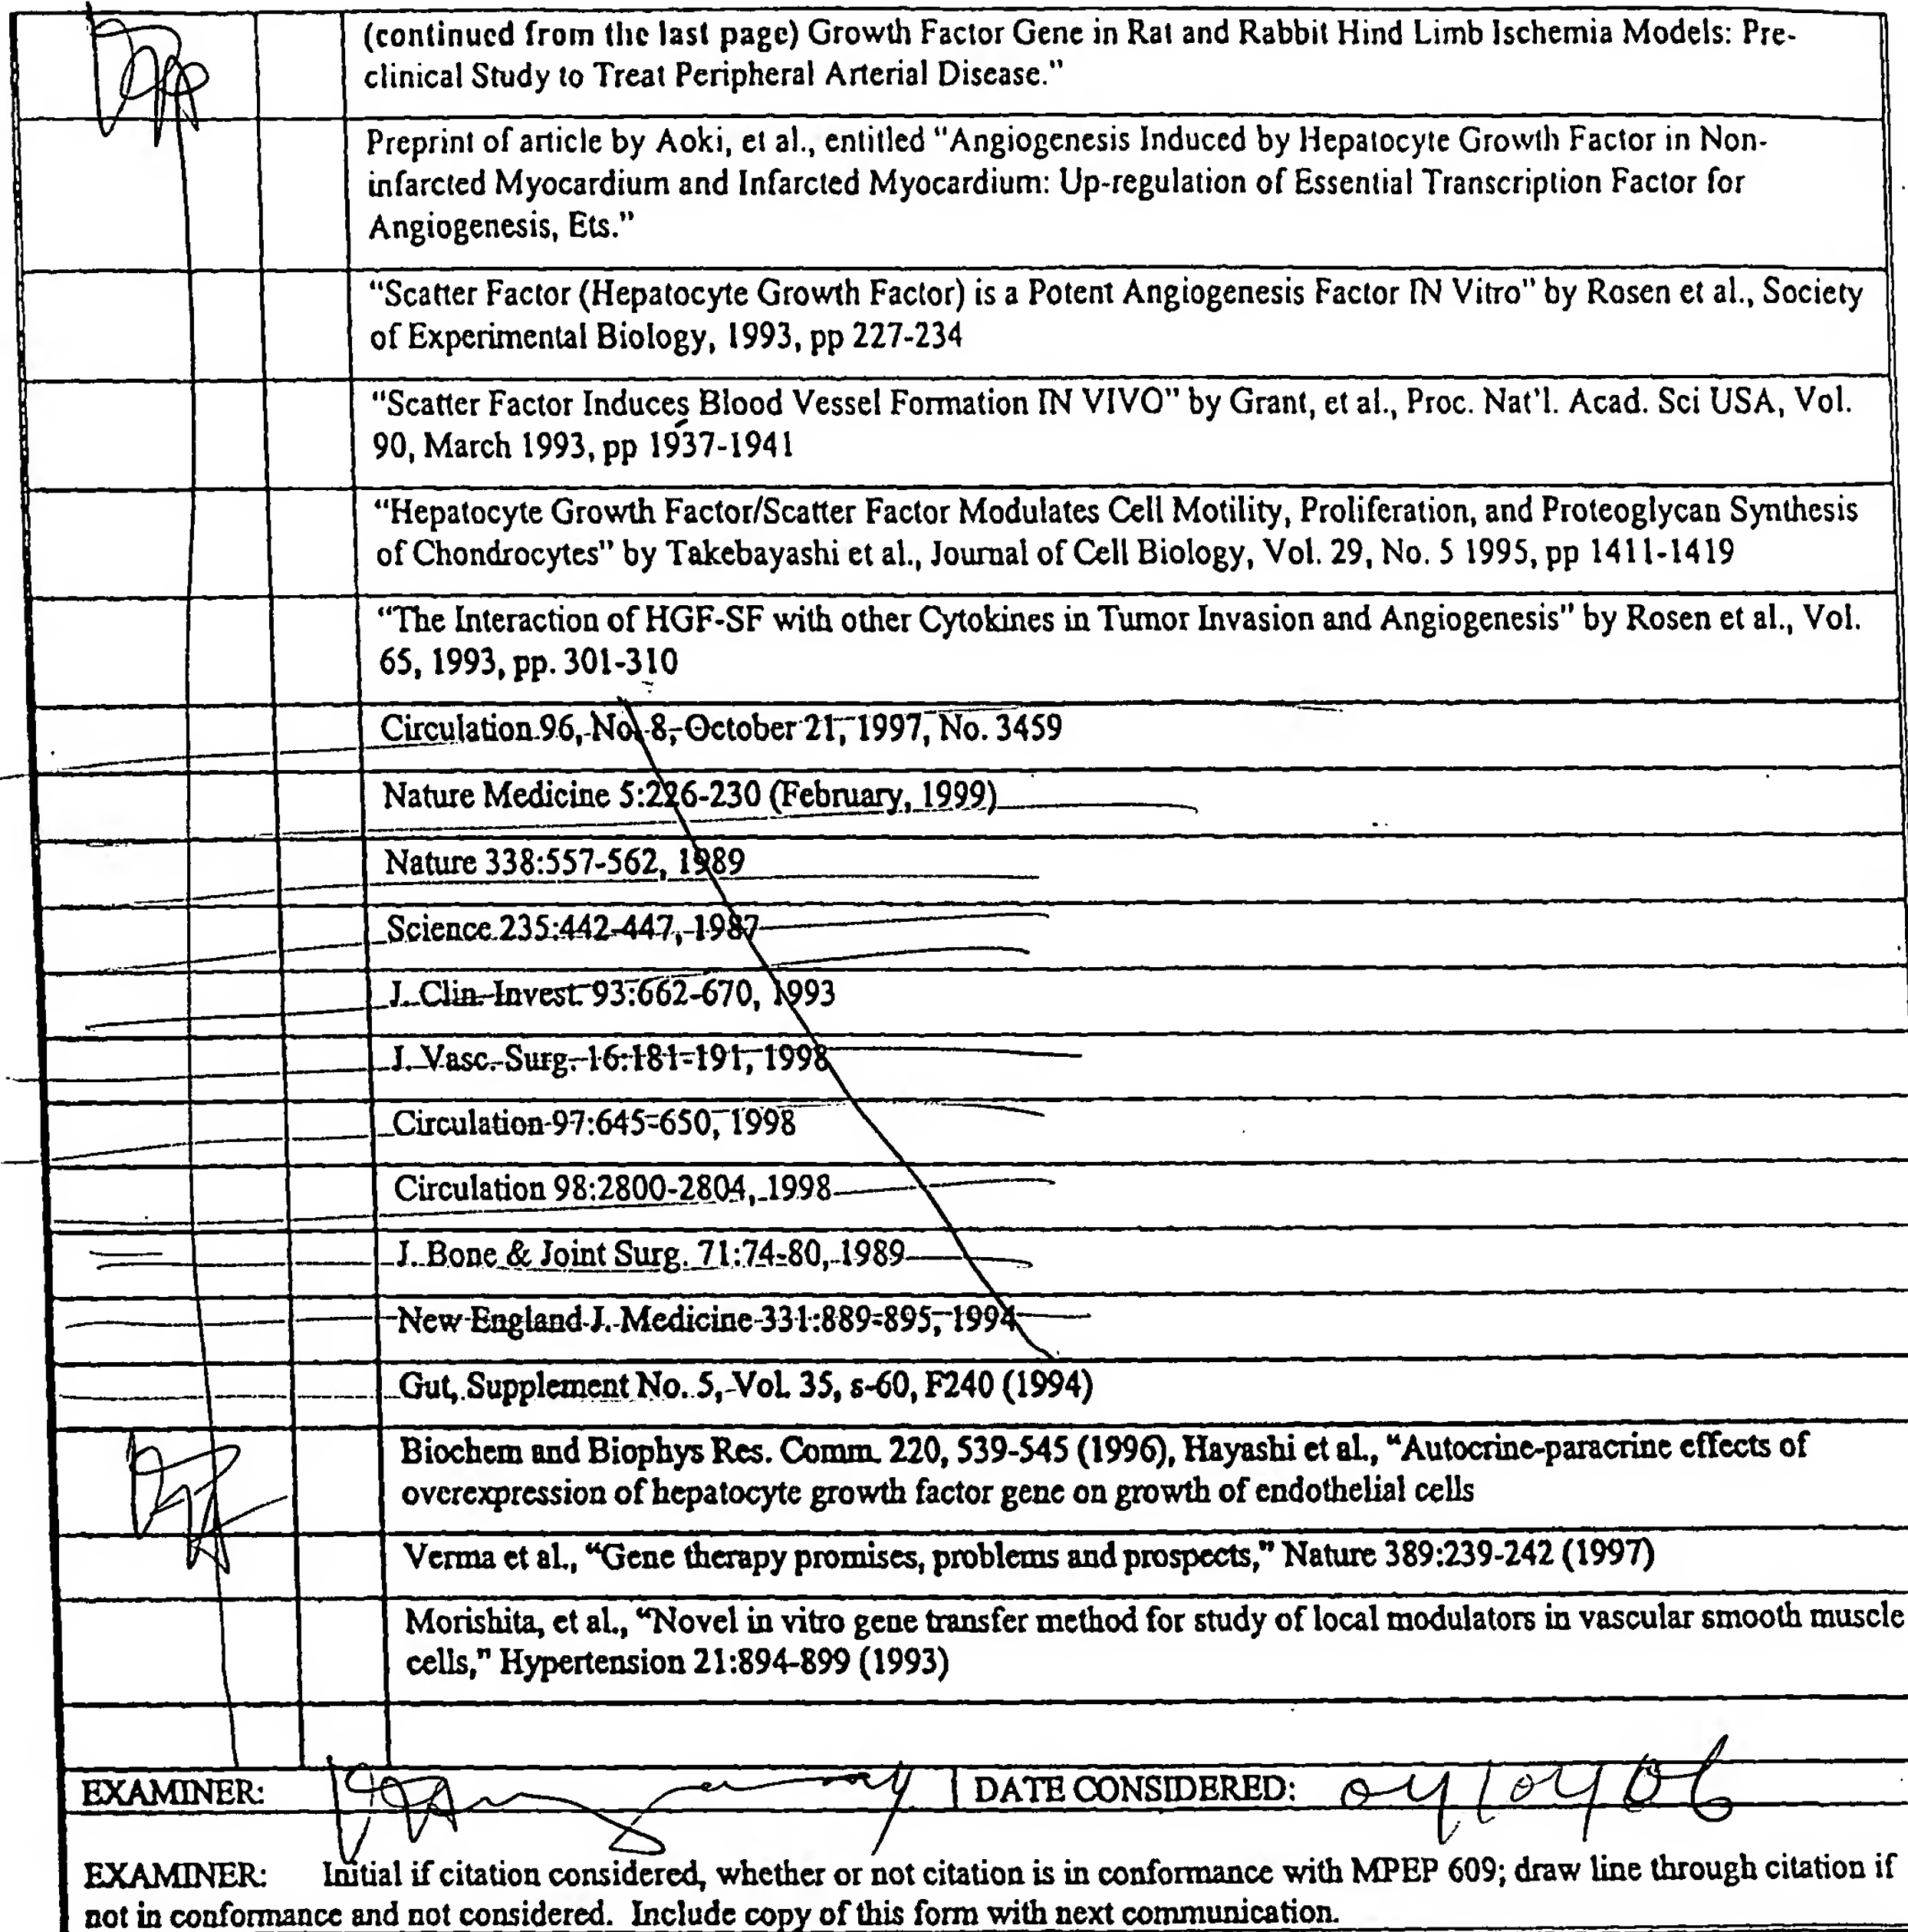 (continued from the last page) Growth Factor Gene in Rat and Rabbit Hind Limb Ischemia Models: Pre-
clinical Study to Treat Peripheral Arterial Disease."
Preprint of article by Aoki, et al., entitled "Angiogenesis Induced by Hepatocyte Growth Factor in Non-
infarcted Myocardium and Infarcted Myocardium: Up-regulation of Essential Transcription Factor for
Angiogenesis, Ets."
"Scatter Factor (Hepatocyte Growth Factor) is a Potent Angiogenesis Factor IN Vitro" by Rosen et al., Society
of Experimental Biology, 1993, pp 227-234
"Scatter Factor Induces Blood Vessel Formation IN VIVO" by Grant, et al., Proc. Nat'l. Acad. Sci USA, Vol.
90, March 1993, pp 1937-1941
"Hepatocyte Growth Factor/Scatter Factor Modulates Cell Motility, Proliferation, and Proteoglycan Synthesis
of Chondrocytes" by Takebayashi et al., Journal of Cell Biology, Vol. 29, No. 5 1995, pp 1411-1419
"The Interaction of HGF-SF with other Cytokines in Tumor Invasion and Angiogenesis" by Rosen et al., Vol.
65, 1993, pp. 301-310
Circulation 96, No. 8, October 21, 1997, No. 3459
Nature Medicine 5:226-230 (February, 1999)
Nature 338:557-562, 1989
Science 235:442-447, 1987
J. Clin. Invest. 93:662-670, 1993
J. Vasc. Surg. 16:181-191, 1998
Circulation 97:645-650, 1998
Circulation 98:2800-2804, 1998
J. Bone & Joint Surg. 71:74-80, 1989
New England J. Medicine 331:889-895, 1994
Gut, Supplement No. 5, Vol. 35, s-60, F240 (1994)
Biochem and Biophys Res. Comm. 220, 539-545 (1996), Hayashi et al., "Autocrine-paracrine effects of
overexpression of hepatocyte growth factor gene on growth of endothelial cells
Verma et al., "Gene therapy promises, problems and prospects," Nature 389:239-242 (1997)
Morishita, et al., "Novel in vitro gene transfer method for study of local modulators in vascular smooth muscle
cells," Hypertension 21:894-899 (1993)
EXAMINER: DATE CONSIDERED: 04/04/06
EXAMINER: Initial if citation considered, whether or not citation is in conformance with MPEP 609; draw line through citation if
not in conformance and not considered. Include copy of this form with next communication.